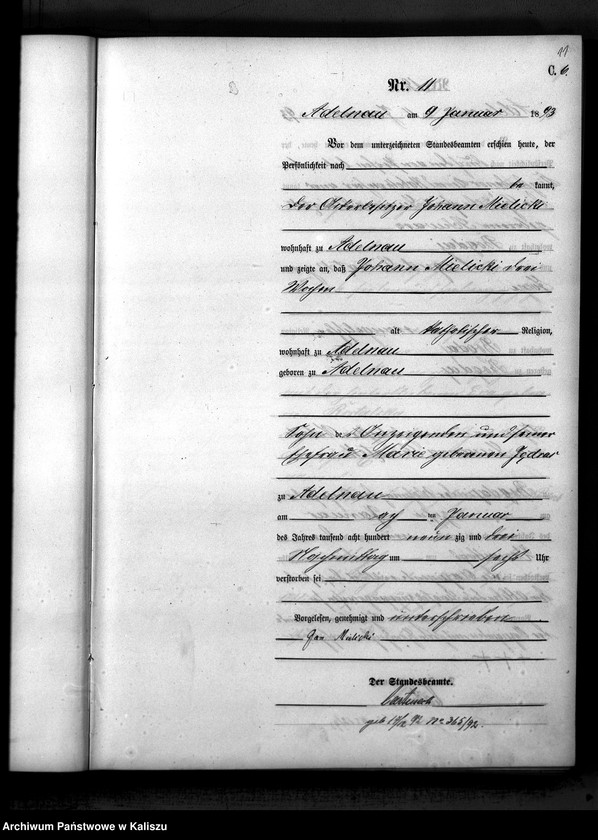 11
C. 6.
Nr. 11
Adelnau am 9 Januar 1893
Vor dem unterzeichneten Standesbeamten erschien heute, der
Persönlichkeit nach
be kannt,
der Ackerbesitzer Johann Mielicki
wohnhaft zu Adelnau
und zeigte an, daß Johann Mielicki drei
Wochen
alt katholischer Religion,
wohnhaft zu Adelnau
geboren zu Adelnau
Sohn des Anzeigenden und seiner
Ehefrau Marie geborenen
zu Adelnau
am acht ten Januar
des Jahres tausend acht hundert neun zig und drei
Nachmittag um sechs Uhr
verstorben sei
Vorgelesen, genehmigt und unterschrieben
Jan Mielicki
Der Standesbeamte.
geb 92 No 365/92.
Archiwum Państwowe w Kaliszu